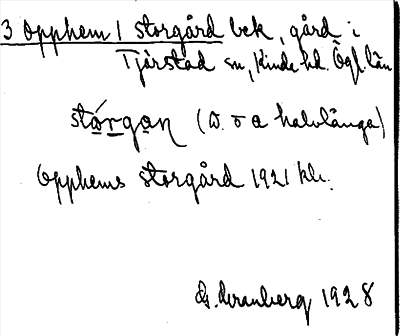 3 Opphem / Storgård bek, gård i
Tjärstad sn, Kinda hd. Ögl. län
stórgan (o. o a halvlånga)
Opphems storgård 1921 kk.
G. Kranberg 1928